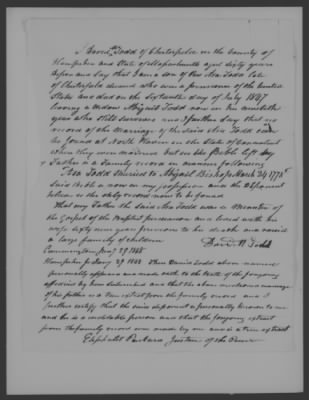 I David N. Todd of Chesterfield in the County of
Hampshire and State of Massachusetts aged sixty years
depose and say that I am a son of the Asa Todd late
of Chesterfield deceased who was a pensioner of the United
States and died on the eighteenth day of July 1847
leaving a widow Abigail Todd now in her ninetieth
year who still survives and I further say that no
record of the Marriage of the said Asa Todd can
be found at North Haven in the State of Connecticut
where they were married but in the Bible left by
Father is a Family record in manner following
Asa Todd Married to Abigail Bishop March 24 1778
said Bible is now in my possession and the Deponent
believes is the only record now to be found
that my Father the said Asa Todd was a Minister of
the Gospel of the Baptist persuasion and lived with his
wife sixty nine years previous to his death and raised
a large family of children
David N. Todd
Cummington Jany 29 1848
Hampshire ss Jany 29 1848 Then David Todd above named
personally appeared and made oath to the truth of the foregoing
affidavit by him subscribed and that the above mentioned marriage
of his father is a true extract from the family record and I
further certify that the said deponent is personally known to me
and he is a creditable person and that the foregoing extract
from the family record was made by me and is a true extract
Eliphalet Packard Justice of the Peace